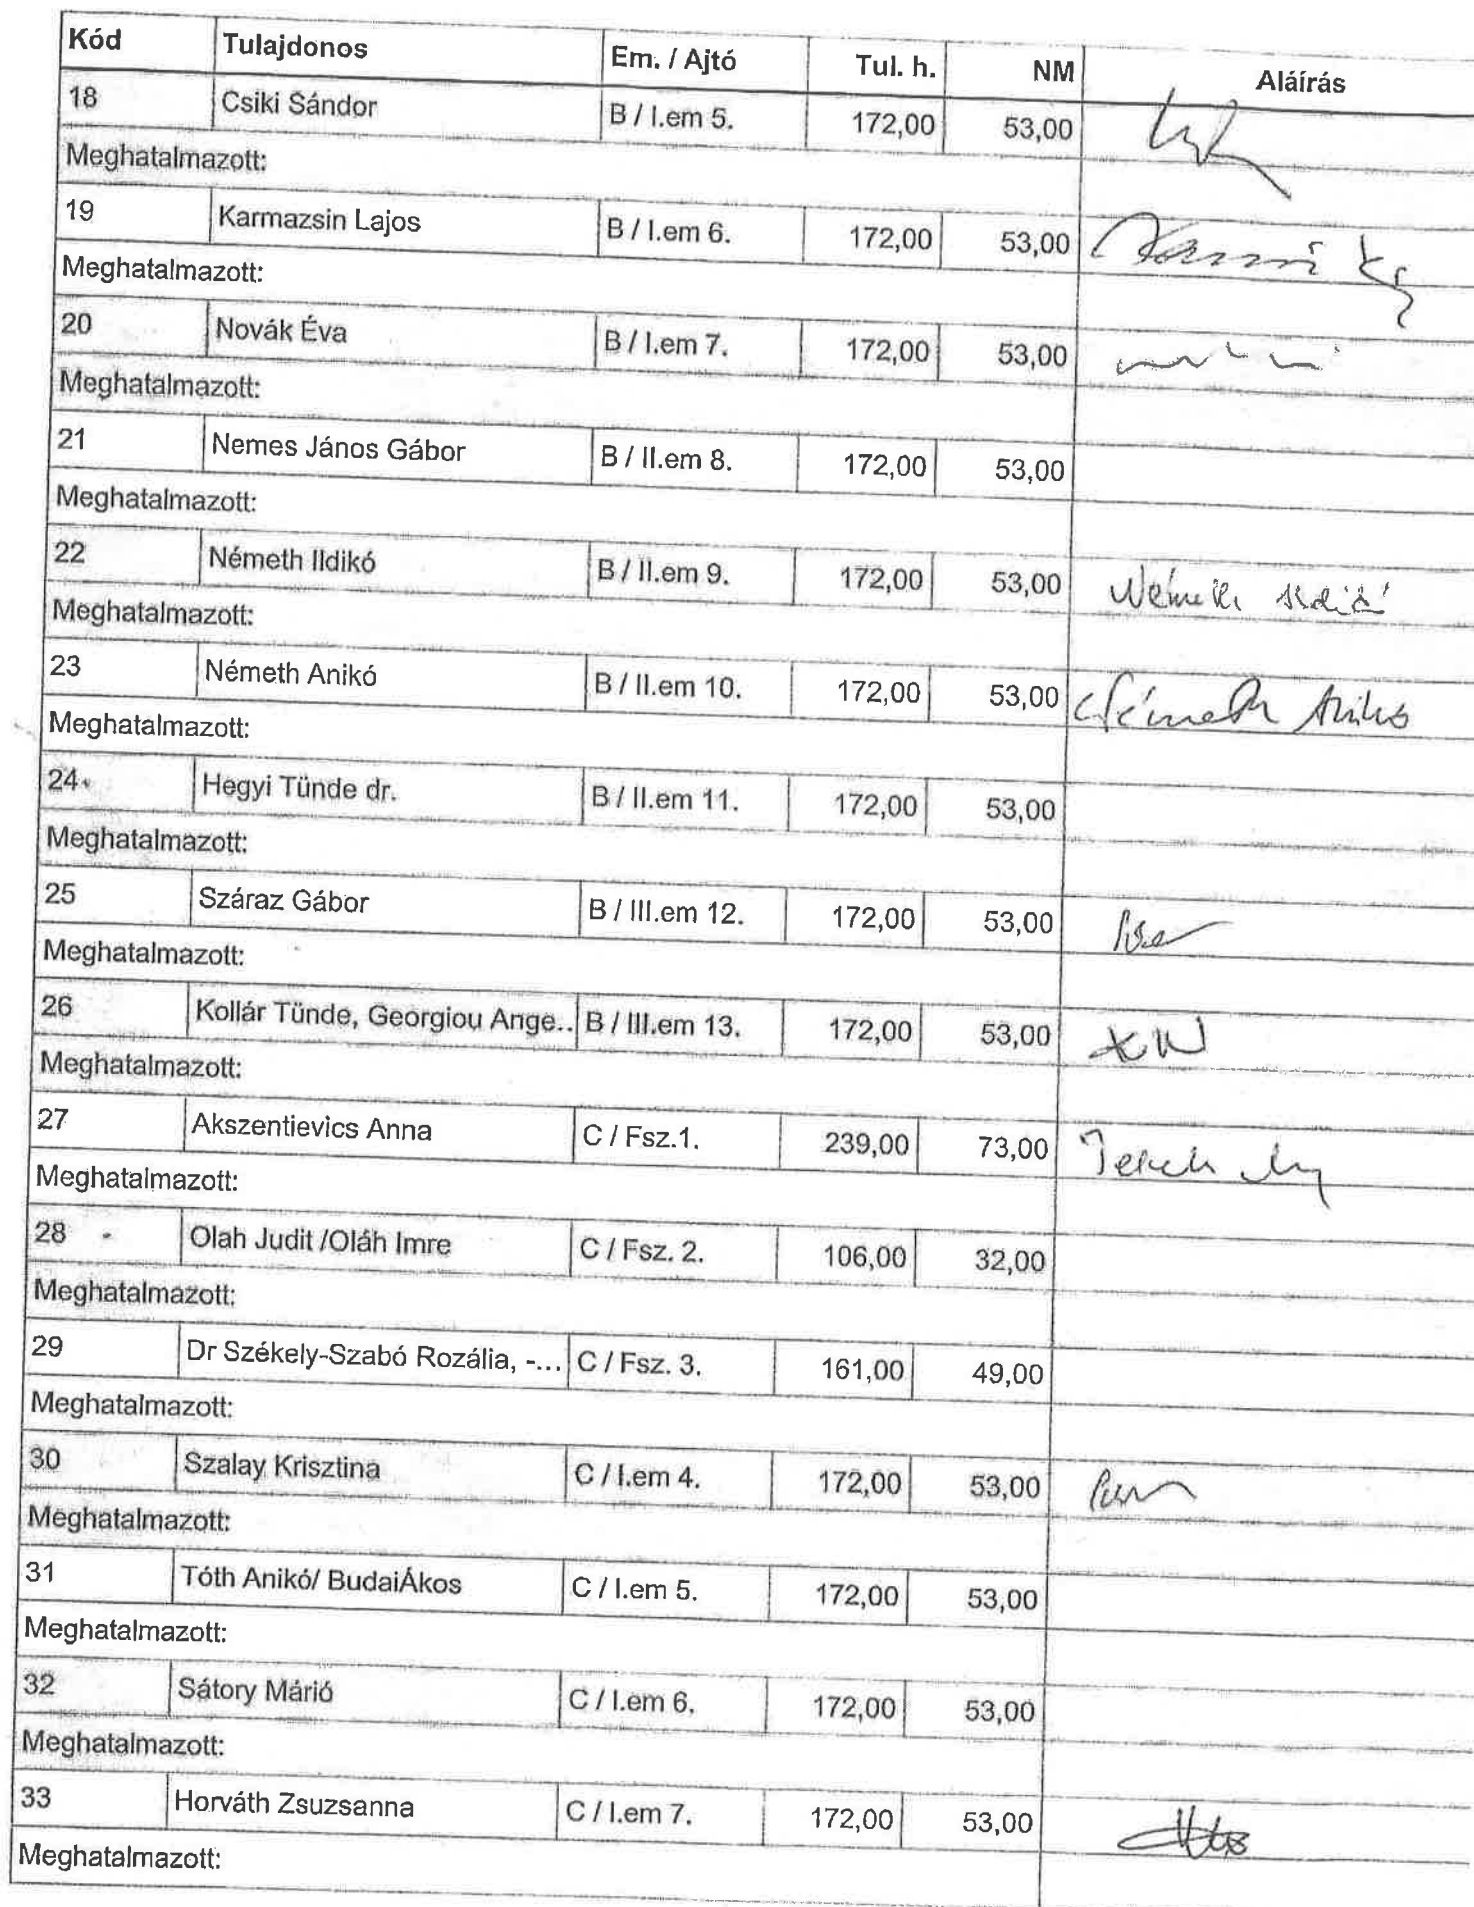 Kód Tulajdonos Em. / Ajtó Tul. h. NM Aláírás
18 Csiki Sándor B / I.em 5. 172,00 53,00
Meghatalmazott:
19 Karmazsin Lajos B / I.em 6. 172,00 53,00
Meghatalmazott:
20 Novák Éva B / I.em 7. 172,00 53,00
Meghatalmazott:
21 Nemes János Gábor B / II.em 8. 172,00 53,00
Meghatalmazott:
22 Németh Ildikó B / II.em 9. 172,00 53,00 Németh Ildikó
Meghatalmazott:
23 Németh Anikó B / II.em 10. 172,00 53,00 Németh Anikó
Meghatalmazott:
24 Hegyi Tünde dr. B / II.em 11. 172,00 53,00
Meghatalmazott:
25 Száraz Gábor B / III.em 12. 172,00 53,00
Meghatalmazott:
26 Kollár Tünde, Georgiou Ange.. B / III.em 13. 172,00 53,00
Meghatalmazott:
27 Akszentievics Anna C / Fsz.1. 239,00 73,00
Meghatalmazott:
28 Olah Judit /Oláh Imre C / Fsz. 2. 106,00 32,00
Meghatalmazott:
29 Dr Székely-Szabó Rozália, -... C / Fsz. 3. 161,00 49,00
Meghatalmazott:
30 Szalay Krisztina C / I.em 4. 172,00 53,00
Meghatalmazott:
31 Tóth Anikó/ BudaiÁkos C / I.em 5. 172,00 53,00
Meghatalmazott:
32 Sátory Márió C / I.em 6. 172,00 53,00
Meghatalmazott:
33 Horváth Zsuzsanna C / I.em 7. 172,00 53,00
Meghatalmazott: